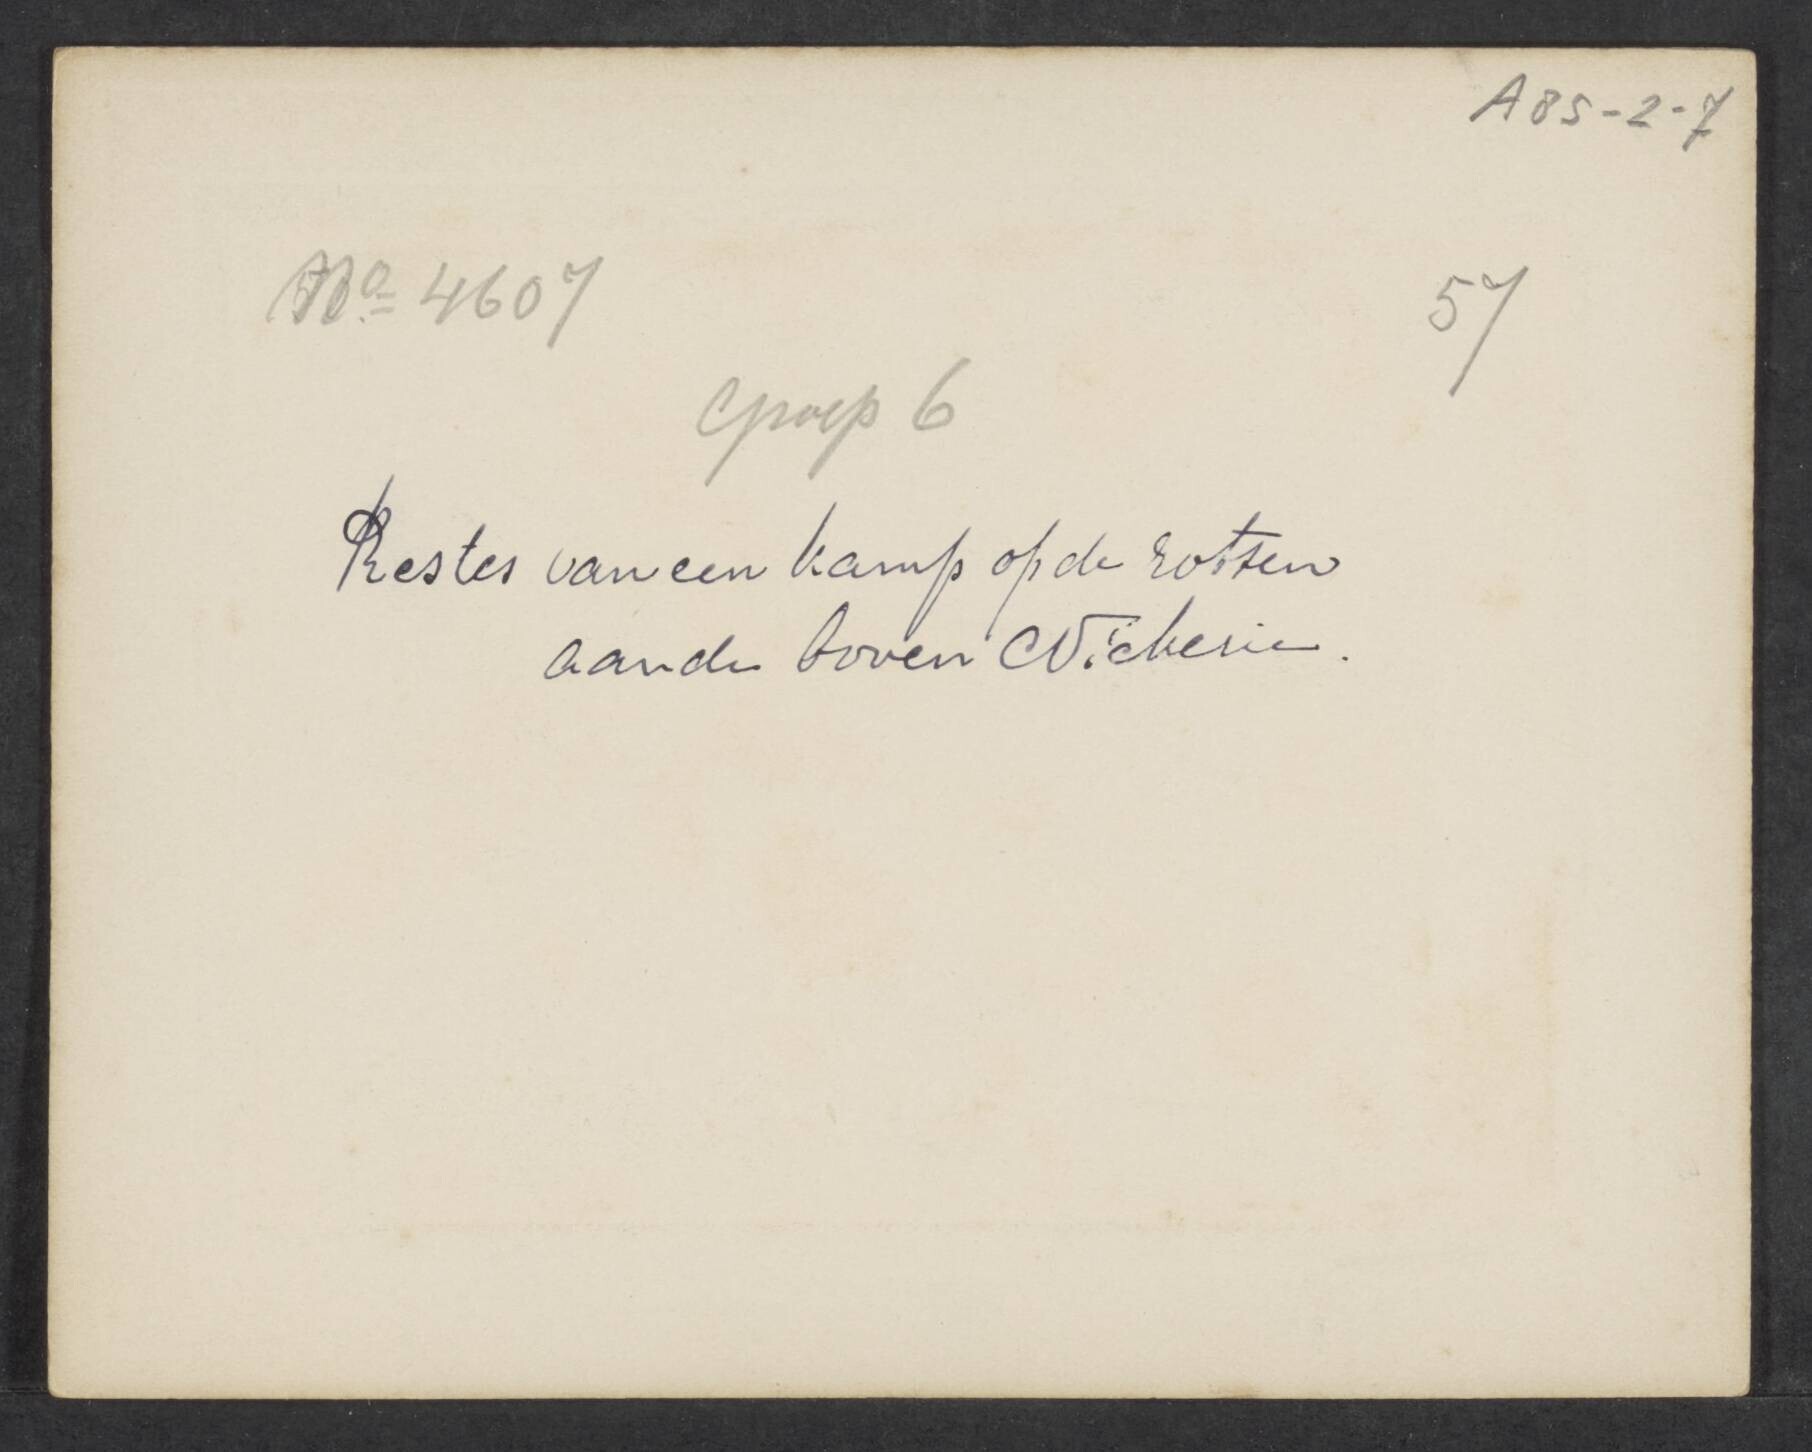 A85-2-7
No 4607
57
Groep 6
Restes van een kamp op de rotsen
aan de boven Nickerie.